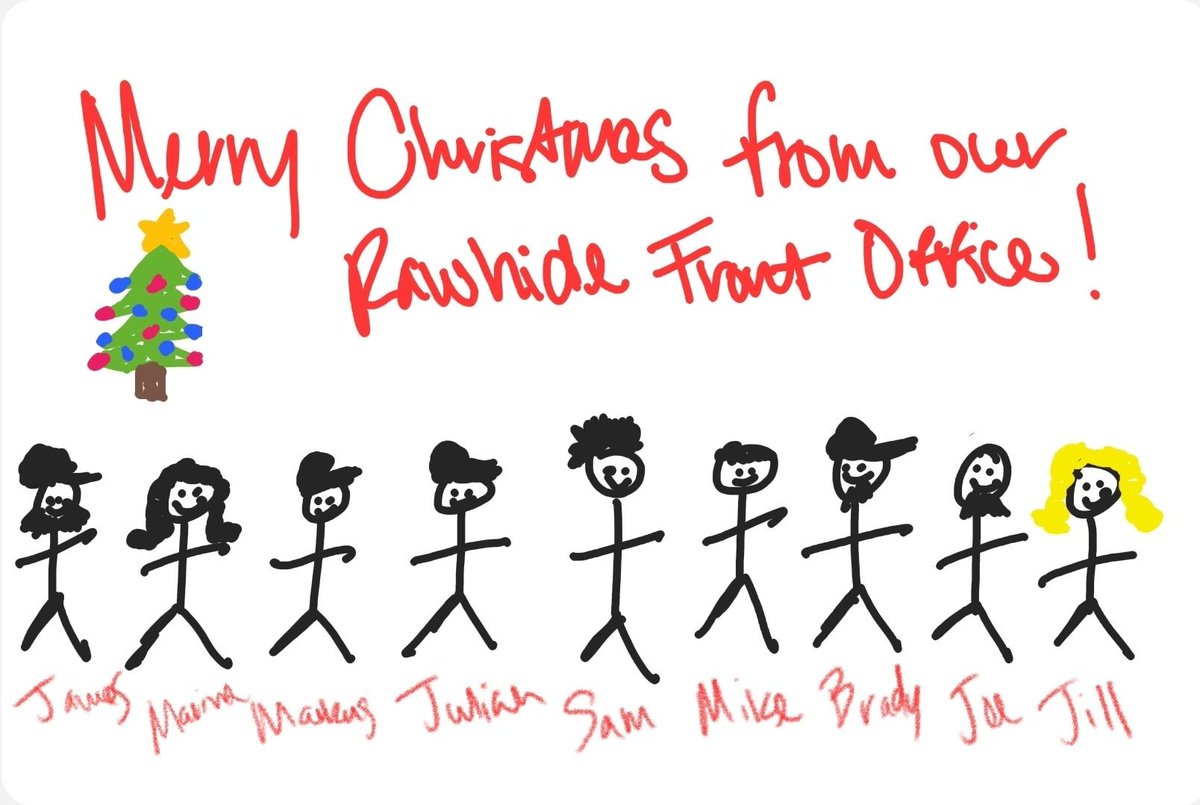 Merry Christmas from our
Rawhide Front Office!
James Marina Markus Julian Sam Mike Brady Joe Jill